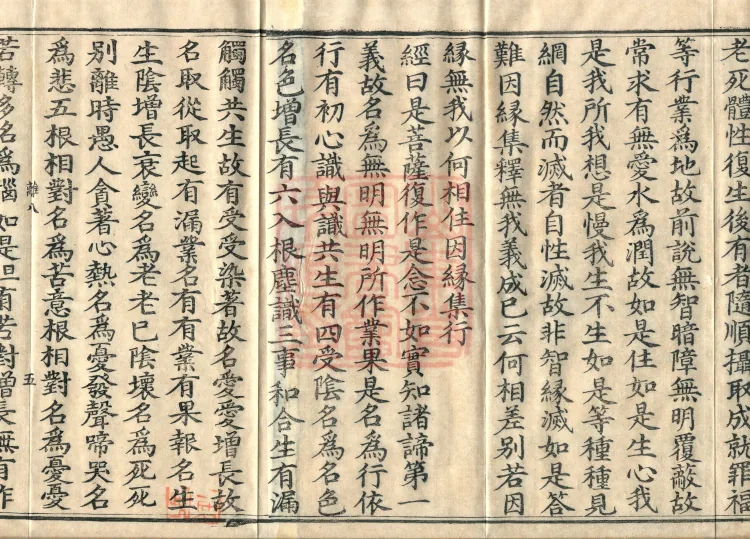 老死體性復生後有者隨順攝取成就罪福
等行業為地故前說無智暗障無明覆蔽故
常求有無愛水為潤故如是住如是生心我
是我所我想是慢我生不生如是等種種見
網自然而滅者自性滅故非智緣滅如是答
難因緣集釋無我義成已云何相差別若因
緣無我以何相住因緣集行
經曰是菩薩復作是念不如實知諸諦第一
義故名為無明無明所作業果是名為行依
行有初心識與識共生有四受陰名為名色
名色增長有六入根塵識三事和合生有漏
觸觸共生故有受受染著故名愛愛增長故
名取從取起有漏業名有有業有果報名生
生陰增長衰變名為老老已陰壞名為死死
別離時愚人貪著心熱名為憂發聲啼哭名
為悲五根相對名為苦意根相對名為憂憂
離八
五
苦轉多名為惱如是但有苦樹增長無有作